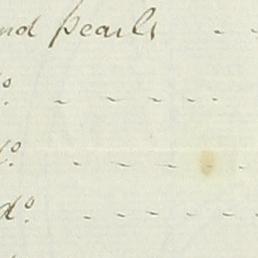 nd pearls - -
º. - - - - -
dº. - - - - -
dº. - - - - -